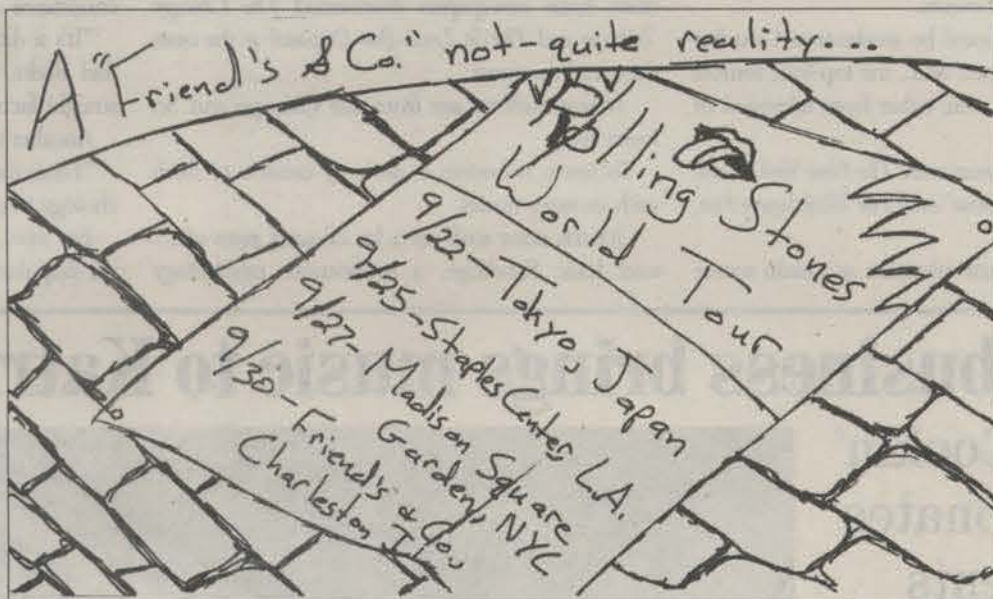 A "Friend's & Co." not-quite reality...
Rolling Stones
World Tour
9/22-Tokyo, Japan
9/25-Staples Center, L.A.
9/27-Madison Square
Garden, NYC
9/30-Friend's & Co,
Charleston, IL